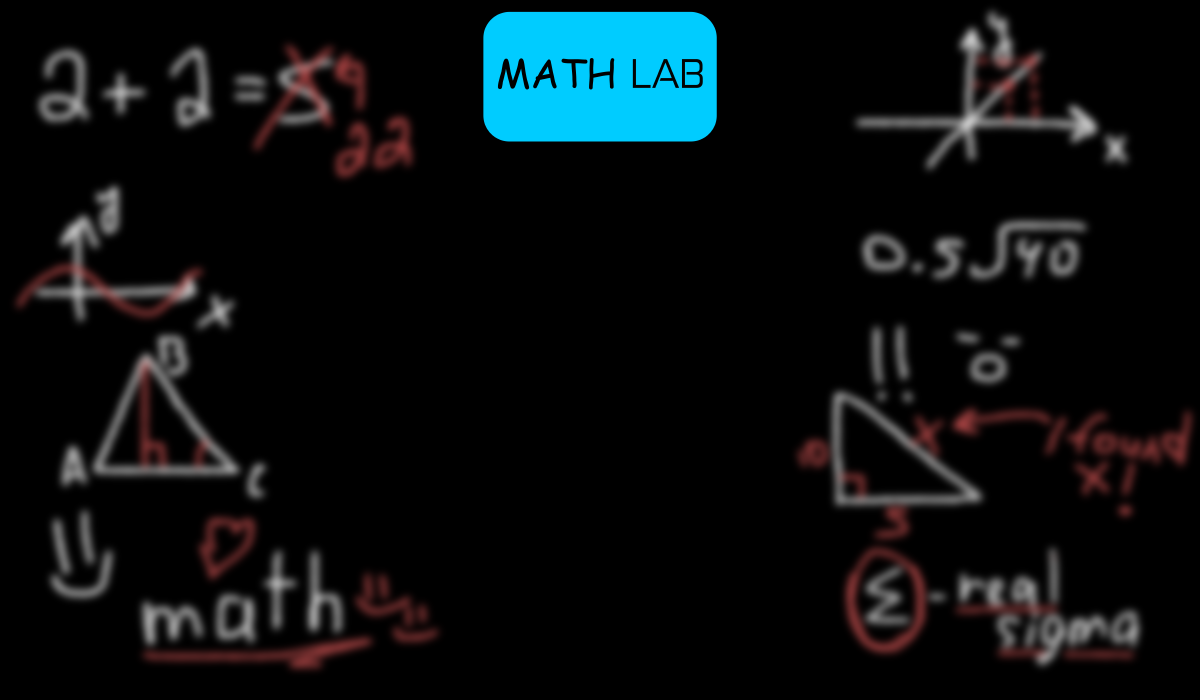 MATH LAB
2 + 2 = 5 4
22
y
x
y
x
B
A
C
math
0.5√40
!!
10
x
I found
x!
5
Σ - real
sigma